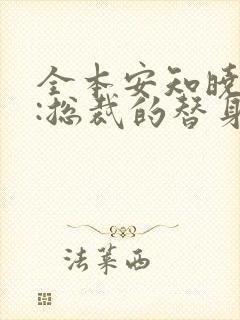 全本安知晓
:总裁的替身
法莱西